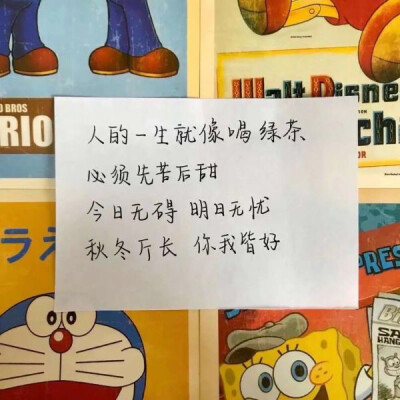 O BROS
RIO
Walt Disney
chi
OR
人的一生就像喝绿茶
必须先苦后甜
今日无碍 明日无忧
秋冬斤长 你我皆好
ラえ
PRES
SA
HANG